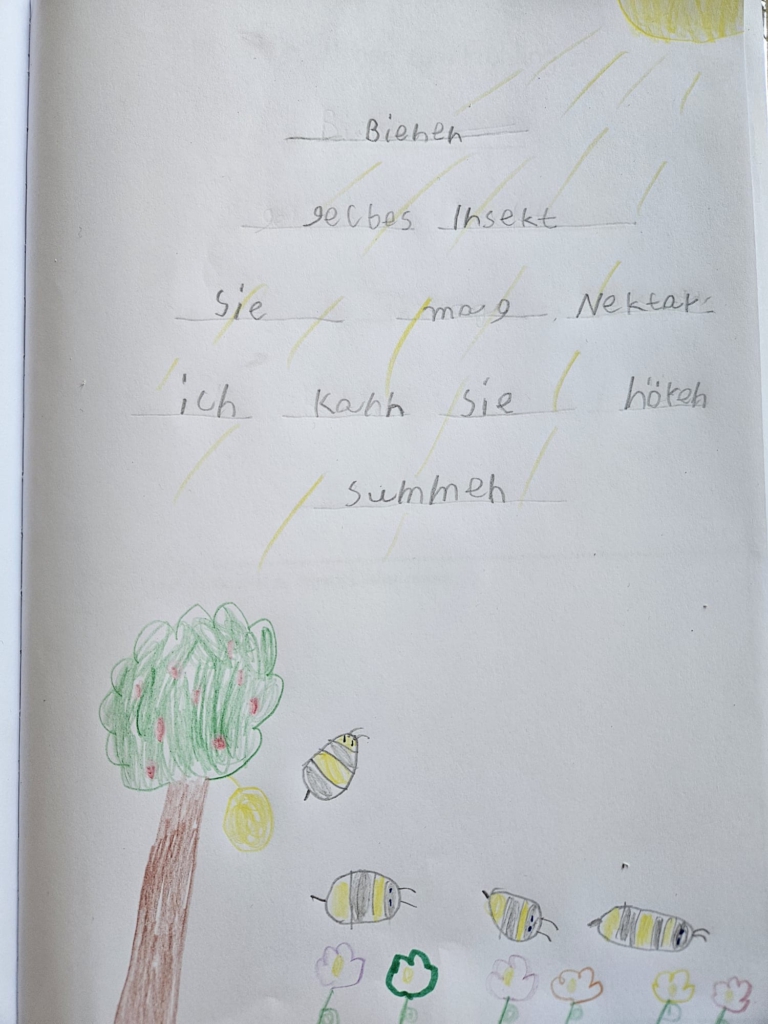 Bienen
gelbes Insekt
Sie mag Nektar
ich kann sie hören
summen